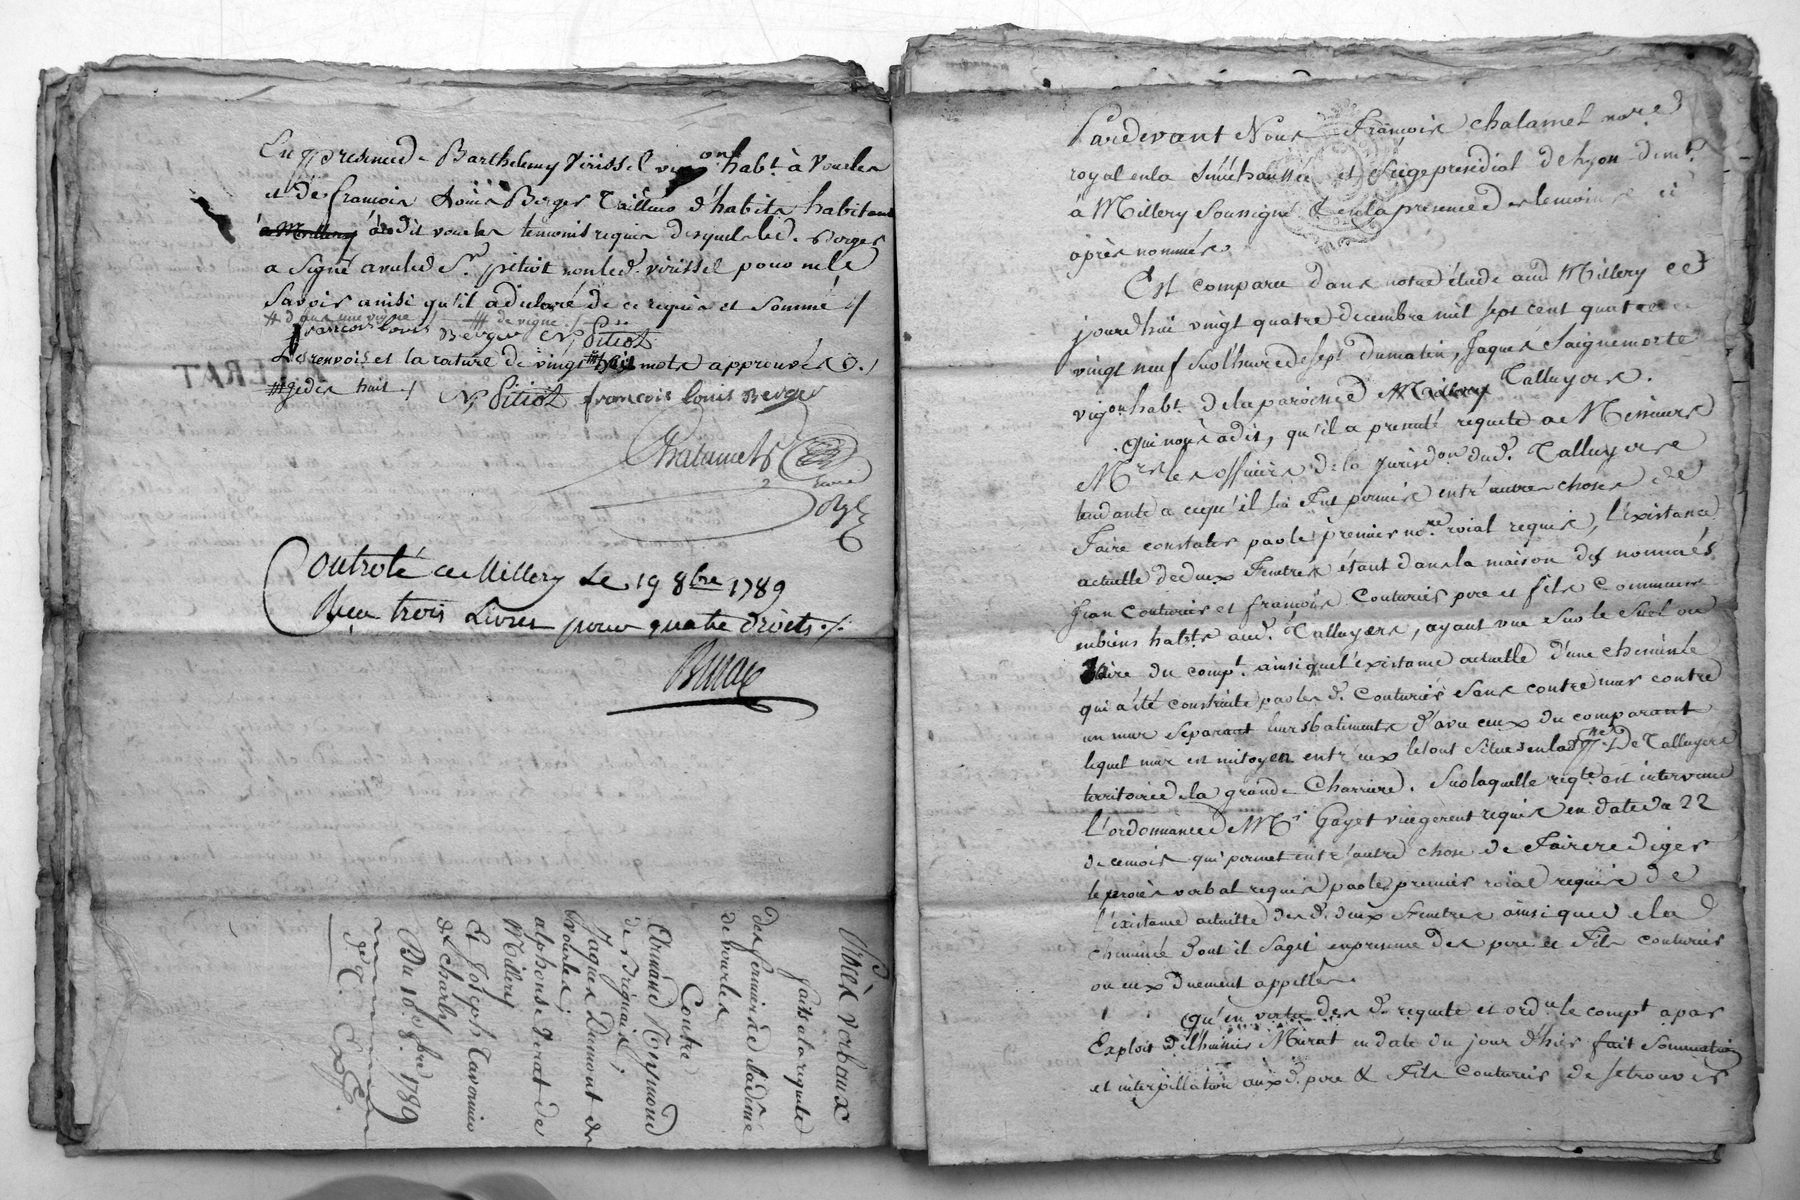 En presence de Barthelemy Virissel vigon habt. à Vourles
et de françois Louis Berger Tailleur d'habits habitant
à Millery audit vourles temoins requis desquels led. Berger
a signé avec led. Sr. pitiot non led. virissel pour ne le
savoir ainsi qu'il a déclaré de ce requis et sommé
# dans une vigne / ## de vigne /
françois louis Berger Pitiot
Les renvois et la rature de vingt huit mots approuvés
huit / Pitiot françois louis Berger
Chalamel
Controlé a Millery Le 19 8bre 1789
Reçu trois Livres pour quatre droits
procès verbaux
faits a la requete
des fermiers de la dîme
de vourles
Contre
de Brignais;
Jaques Dumont de
vourles;
alphonse Verat de
Millery
Et Joseph Tavernier
de Charly
Du 10e. 8bre 1789
Pardevant Nous François Chalamel nore
royal en la Sénéchaussée et Siège présidial de Lyon demt.
à Millery soussigné & en la présence des temoins ci
après nommés
Est comparu dans notre étude aud Millery ce
jourd'hui vingt quatre decembre mil sept cent quatre
vingt neuf sur l'heure de sept du matin, Jaques Saignemorte
vigon habt. de la paroisse de Millery Talluyers.
Qui nous a dit, qu'il a presenté requete a Messieurs
Mrs les officiers de la Jurisdon dud. Talluyers
tendante a ce qu'il lui fut permis entr'autres choses de
Faire constater par le premier nore roial requis, l'existance
actuelle de deux Fenetres étant dans la maison des nommés
Jean Couturier et françois Couturier pere et fils communs
en biens habts aud. Talluyers, ayant vue sur le Sol ou
aire du compt. ainsi que l'existance actuelle d'une cheminée
qui a été construite par les d. Couturier sans contre mur contre
un mur separant leurs batiments d'avec ceux du comparant
lequel mur est mitoyen entr'eux le tout situé en lad. psse De Talluyers
territoire de la grande Charriere. Sur laquelle reqte est intervenue
l'ordonnance de Mr. Gayet vicegerent requis en date du 22
de ce mois qui permet entr'autre chose de Faire rediger
le procès verbal requis par le premier roial requis de
l'existance actuelle des d. deux Fenetres ainsi que de la
cheminée dont il s'agit en presence des pere et Fils couturier
ou eux duement appellés
Qu'en vertu des d. requete et ordce le compt a par
Exploit de l'huissier Murat en date du jour d'hier fait sommation
et interpellation auxd. pere & Fils Couturier de se trouver